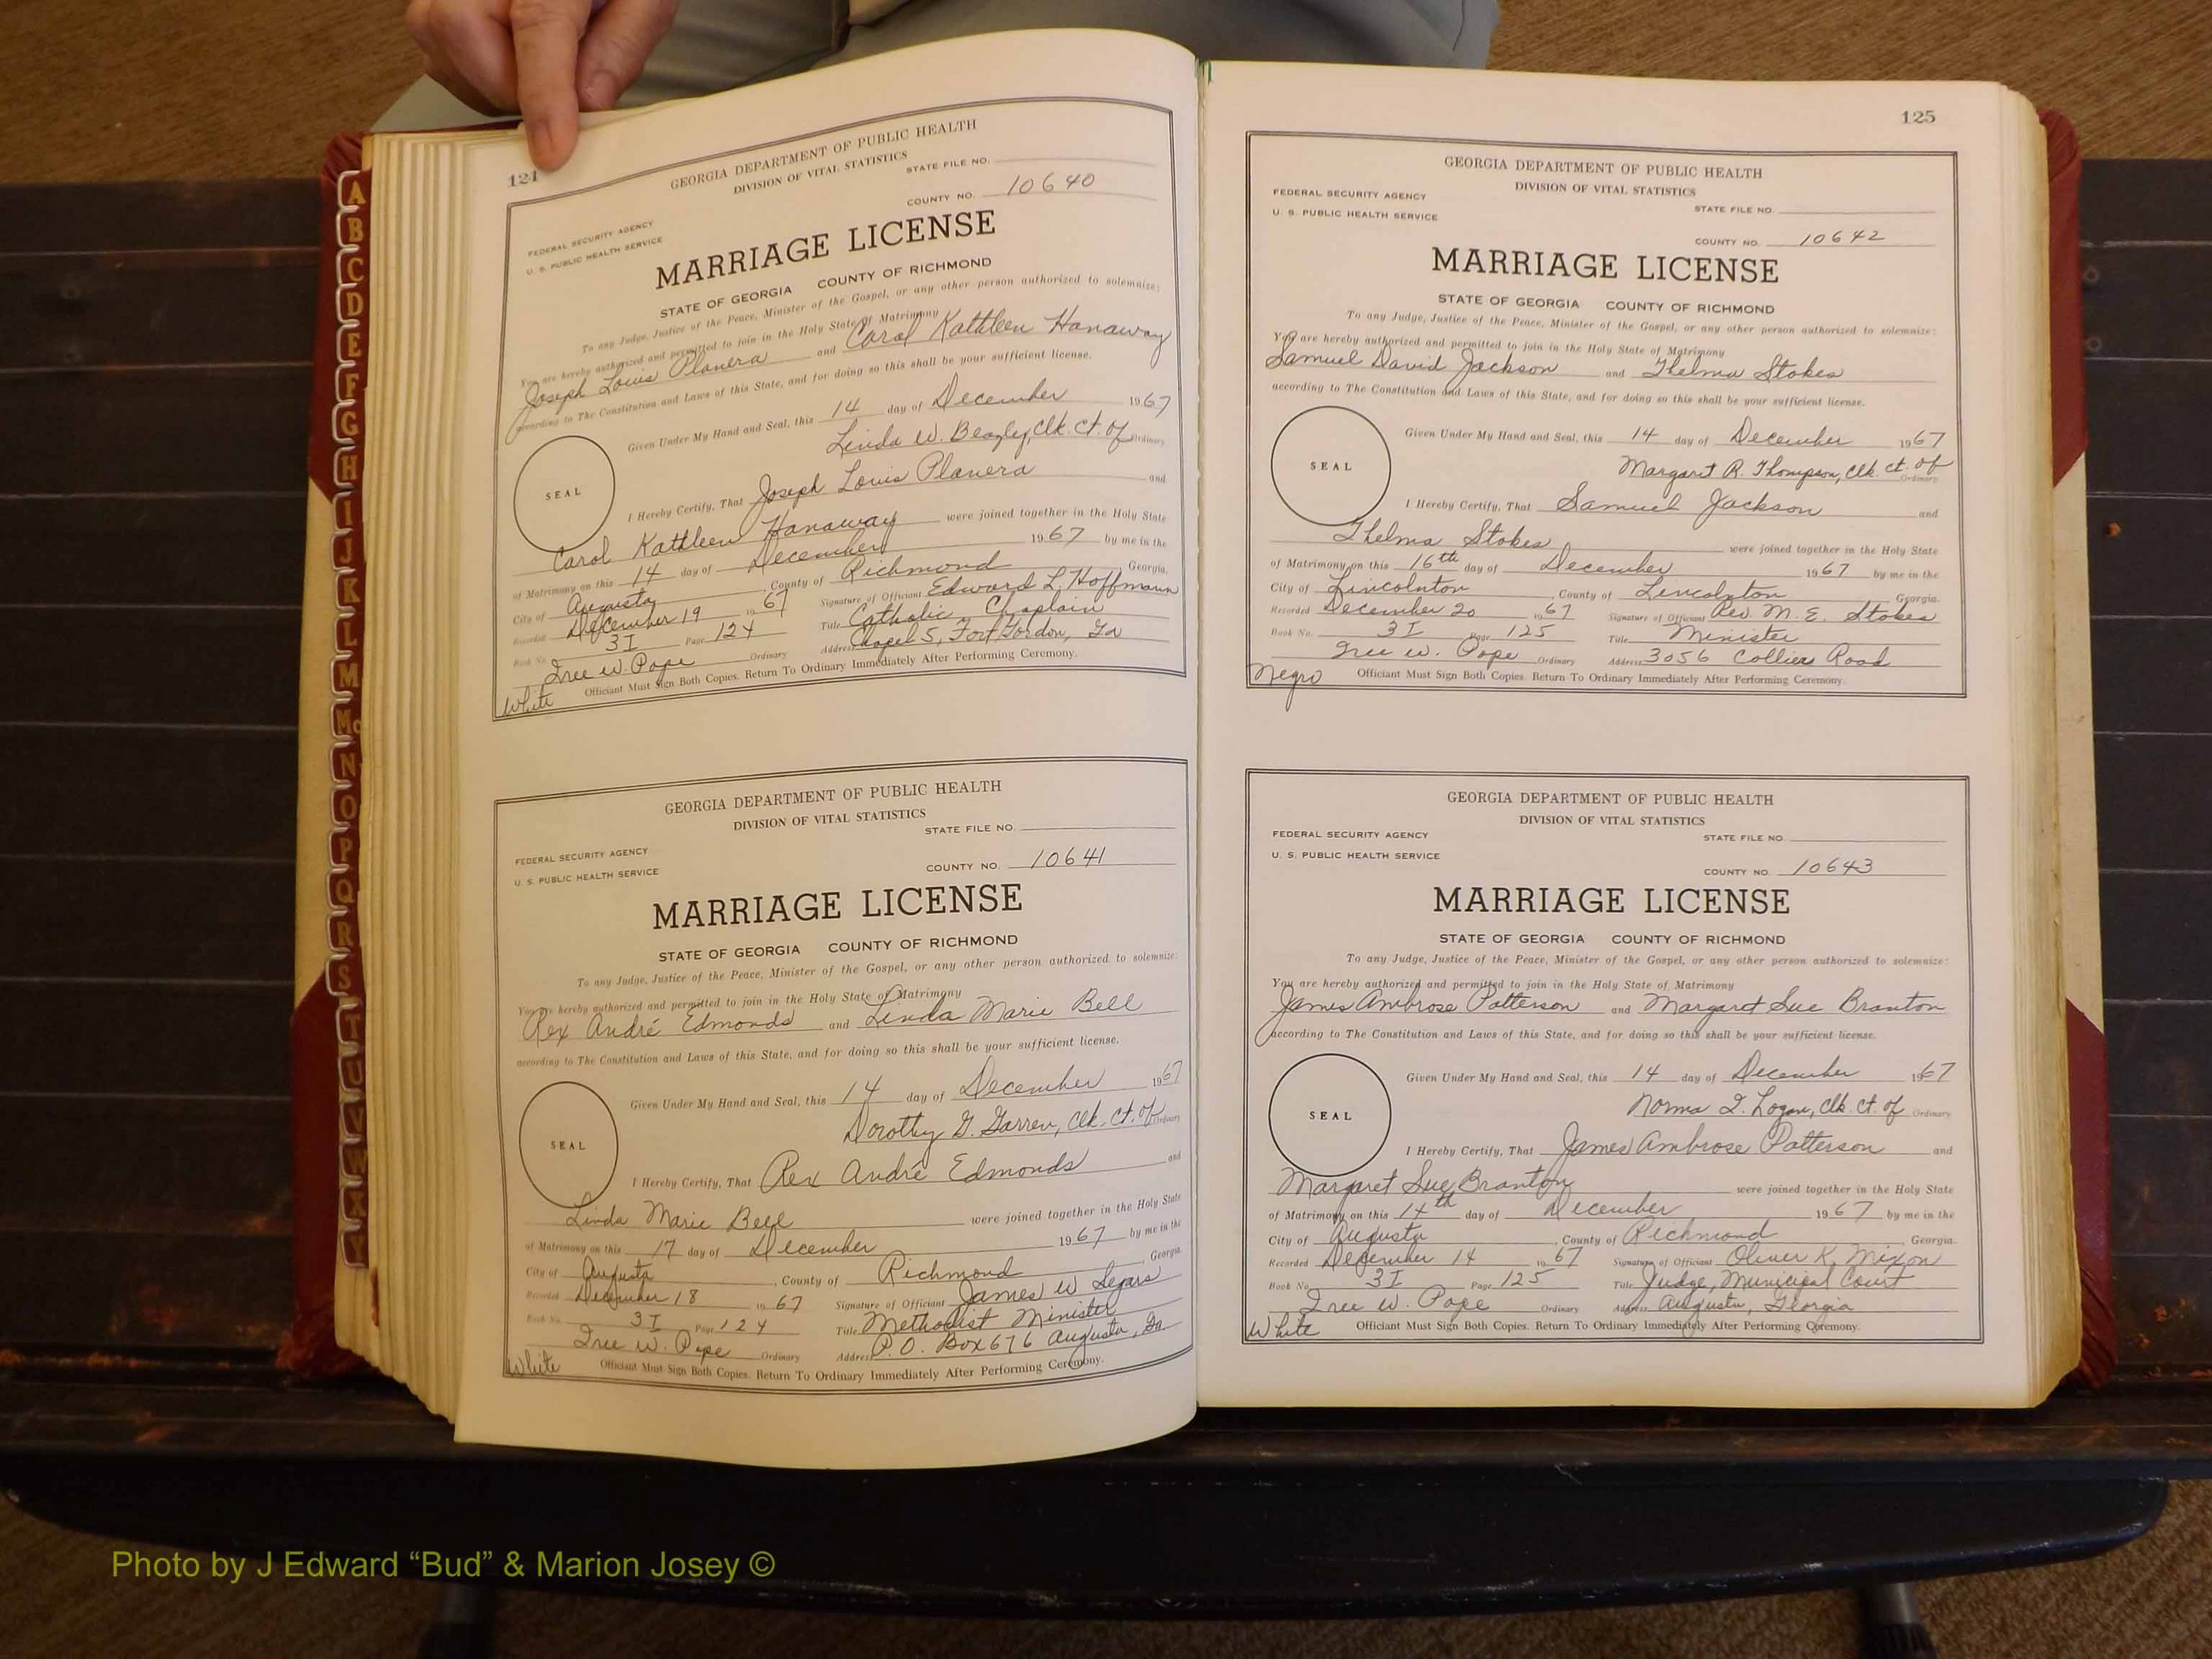 124
GEORGIA DEPARTMENT OF PUBLIC HEALTH
DIVISION OF VITAL STATISTICS
STATE FILE NO.
COUNTY NO. 10640
FEDERAL SECURITY AGENCY
U. S. PUBLIC HEALTH SERVICE
MARRIAGE LICENSE
STATE OF GEORGIA COUNTY OF RICHMOND
To any Judge, Justice of the Peace, Minister of the Gospel, or any other person authorized to solemnize:
You are hereby authorized and permitted to join in the Holy State of Matrimony
Joseph Louis Planera and Carol Kathleen Hanaway
according to The Constitution and Laws of this State, and for doing so this shall be your sufficient license.
Given Under My Hand and Seal, this 14 day of December 1967
Linda W. Beazley, Clk. Ct. of Ordinary
SEAL
I Hereby Certify, That Joseph Louis Planera and
Carol Kathleen Hanaway were joined together in the Holy State
of Matrimony on this 14 day of December 1967 by me in the
City of Augusta, County of Richmond Georgia.
Recorded December 19 1967 Signature of Officiant Edward L. Hoffmann
Book No. 3I Page 124 Title Catholic Chaplain
Iree W. Pope Ordinary Address Chapel 5, Fort Gordon, Ga
Officiant Must Sign Both Copies. Return To Ordinary Immediately After Performing Ceremony.
White
GEORGIA DEPARTMENT OF PUBLIC HEALTH
DIVISION OF VITAL STATISTICS
STATE FILE NO.
FEDERAL SECURITY AGENCY
U. S. PUBLIC HEALTH SERVICE
COUNTY NO. 10641
MARRIAGE LICENSE
STATE OF GEORGIA COUNTY OF RICHMOND
To any Judge, Justice of the Peace, Minister of the Gospel, or any other person authorized to solemnize:
You are hereby authorized and permitted to join in the Holy State of Matrimony
Rex André Edmonds and Linda Marie Bell
according to The Constitution and Laws of this State, and for doing so this shall be your sufficient license.
Given Under My Hand and Seal, this 14 day of December 1967
Dorothy G. Garren, Clk. Ct. of Ordinary
SEAL
I Hereby Certify, That Rex André Edmonds and
Linda Marie Bell were joined together in the Holy State
of Matrimony on this 17 day of December 1967 by me in the
City of Augusta, County of Richmond Georgia.
Recorded December 18 1967 Signature of Officiant James W Segars
Book No. 3I Page 124 Title Methodist Minister
Iree W. Pope Ordinary Address P.O. Box 676 Augusta, Ga.
White Officiant Must Sign Both Copies. Return To Ordinary Immediately After Performing Ceremony.
125
GEORGIA DEPARTMENT OF PUBLIC HEALTH
DIVISION OF VITAL STATISTICS
FEDERAL SECURITY AGENCY
U. S. PUBLIC HEALTH SERVICE
STATE FILE NO.
COUNTY NO. 10642
MARRIAGE LICENSE
STATE OF GEORGIA COUNTY OF RICHMOND
To any Judge, Justice of the Peace, Minister of the Gospel, or any other person authorized to solemnize:
You are hereby authorized and permitted to join in the Holy State of Matrimony
Samuel David Jackson and Thelma Stokes
according to The Constitution and Laws of this State, and for doing so this shall be your sufficient license.
Given Under My Hand and Seal, this 14 day of December 1967
Margaret R. Thompson, Clk. Ct. of Ordinary
SEAL
I Hereby Certify, That Samuel Jackson and
Thelma Stokes were joined together in the Holy State
of Matrimony on this 16th day of December 1967 by me in the
City of Lincolnton, County of Lincolnton Georgia.
Recorded December 20 1967 Signature of Officiant Rev. M. E. Stokes
Book No. 3I Page 125 Title Minister
Iree W. Pope Ordinary Address 3056 Colliers Road
Negro Officiant Must Sign Both Copies. Return To Ordinary Immediately After Performing Ceremony.
GEORGIA DEPARTMENT OF PUBLIC HEALTH
DIVISION OF VITAL STATISTICS
FEDERAL SECURITY AGENCY
STATE FILE NO.
U. S. PUBLIC HEALTH SERVICE
COUNTY NO. 10643
MARRIAGE LICENSE
STATE OF GEORGIA COUNTY OF RICHMOND
To any Judge, Justice of the Peace, Minister of the Gospel, or any other person authorized to solemnize:
You are hereby authorized and permitted to join in the Holy State of Matrimony
James Ambrose Patterson and Margaret Sue Branton
according to The Constitution and Laws of this State, and for doing so this shall be your sufficient license.
Given Under My Hand and Seal, this 14 day of December 1967
Norma I. Logan, Clk. Ct. of Ordinary
SEAL
I Hereby Certify, That James Ambrose Patterson and
Margaret Sue Branton were joined together in the Holy State
of Matrimony on this 14th day of December 1967 by me in the
City of Augusta, County of Richmond Georgia.
Recorded December 14 1967 Signature of Officiant Oliver K. Mixon
Book No. 3I Page 125 Title Judge, Municipal Court
Iree W. Pope Ordinary Address Augusta, Georgia
White Officiant Must Sign Both Copies. Return To Ordinary Immediately After Performing Ceremony.
A
B
C
D
E
F
G
H
I
J
K
L
M
Mc
N
O
P
Q
R
S
T
U
V
W
X
Y
Photo by J Edward “Bud” & Marion Josey ©